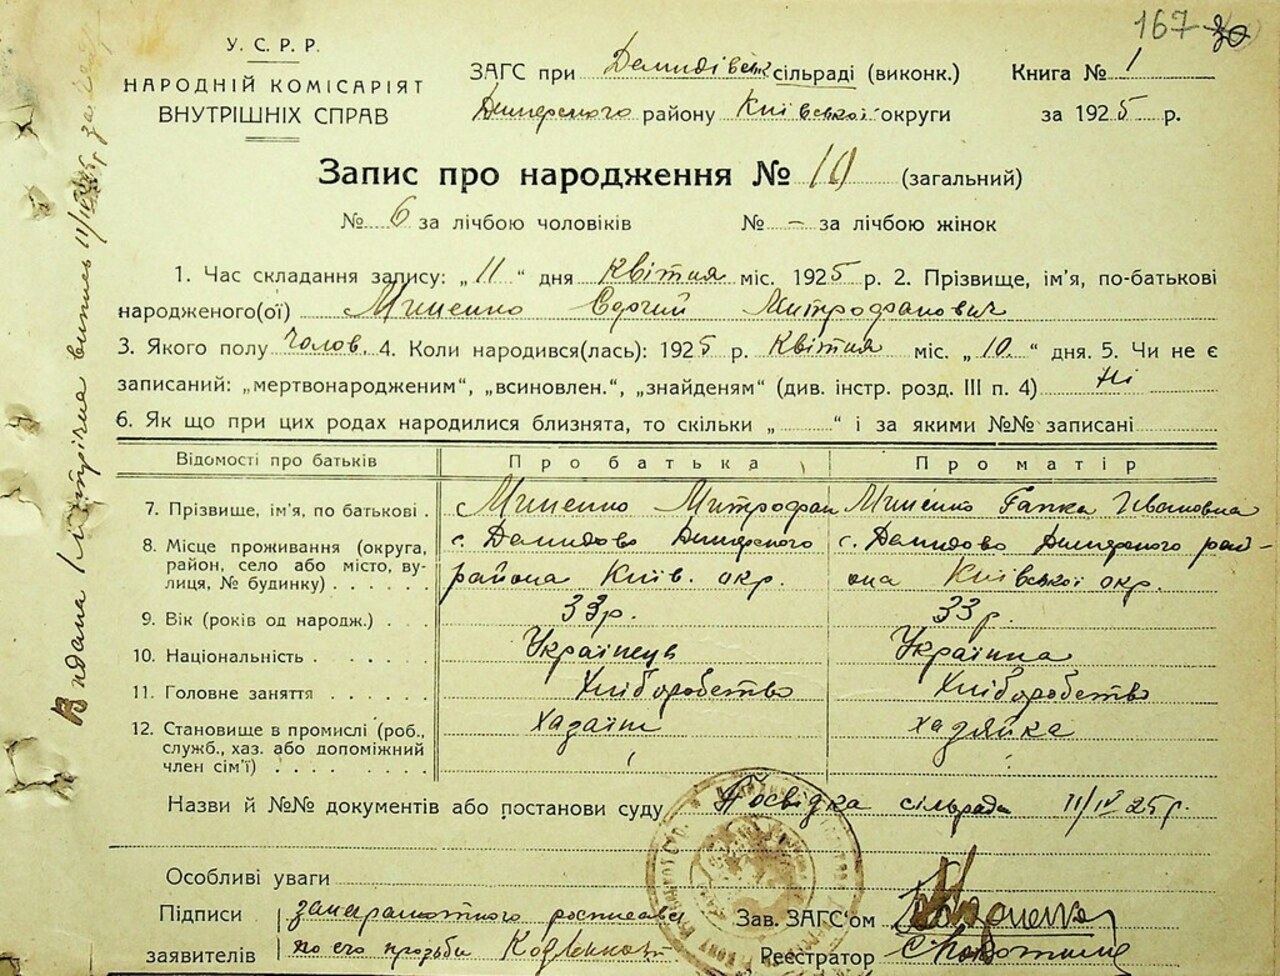 167 30
У. С. Р. Р.
НАРОДНІЙ КОМІСАРІЯТ
ВНУТРІШНІХ СПРАВ
ЗАГС при Демидівськ сільраді (виконк.) Книга № 1
Димерского району Київської округи за 1925 р.
Запис про народження № 10 (загальний)
№ 6 за лічбою чоловіків № – за лічбою жінок
1. Час складання запису: „11“ дня Квітня міс. 1925 р. 2. Прізвище, ім'я, по-батькові
народженого(ої) Миненко Митрофанович
3. Якого полу Чолов. 4. Коли народився(лась): 1925 р. Квітня міс. „10.“ дня. 5. Чи не є
записаний: „мертвонародженим“, „всиновлен.“, „знайденям“ (див. інстр. розд. III п. 4) Ні
6. Як що при цих родах народилися близнята, то скільки „ “ і за якими №№ записані
Відомості про батьків Про батька Про матір
7. Прізвище, ім'я, по батькові . Миненко Митрофан Миненко Гапка Ивановна
8. Місце проживання (округа, район, село або місто, вулиця, № будинку) с. Демидово Димерского района Київ. окр. с. Демидово Димерского района Київської окр.
9. Вік (років од народж.) 33 р. 33 р.
10. Національність Українець Українка
11. Головне заняття Хліборобство Хліборобство
12. Становище в промислі (роб., служб., хаз. або допоміжний член сім'ї) хазаїн хадяйка
Назви й №№ документів або постанови суду Посвідка сільради 11/IV 25 р.
Особливі уваги
Підписи заявителів росписався по его прозьби
Зав. ЗАГС'ом
Реєстратор
Видана витись 11/IV